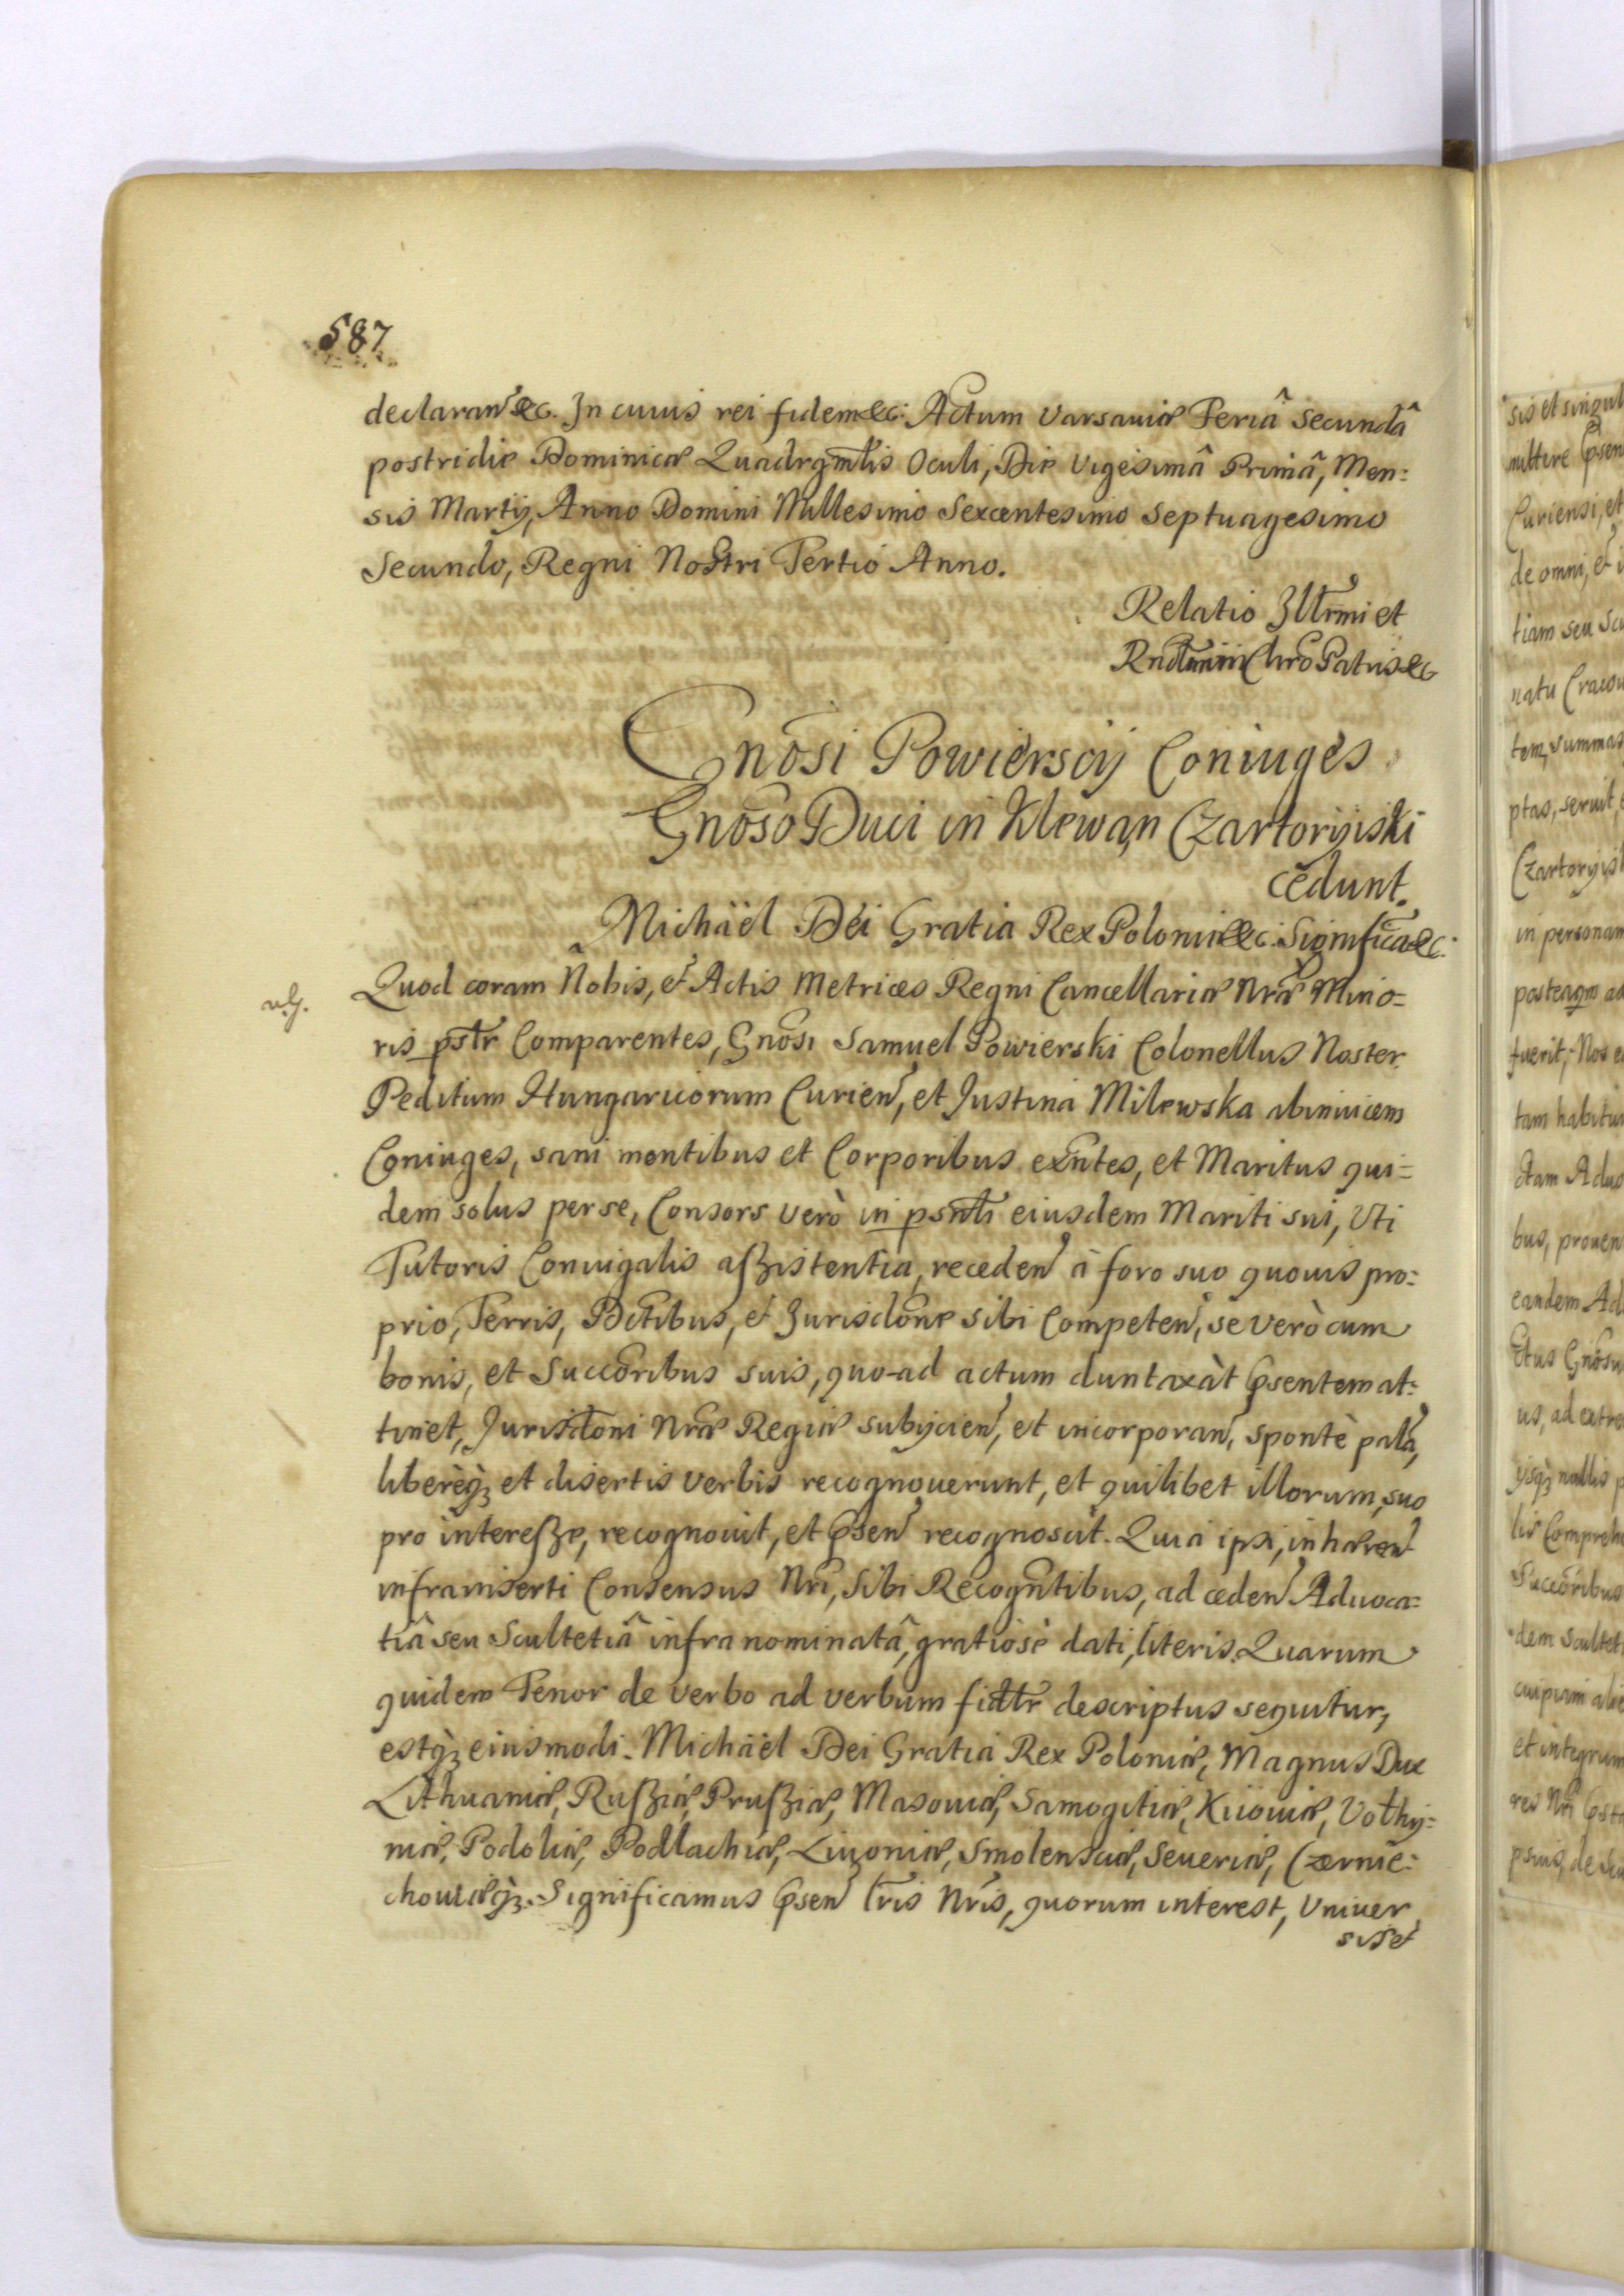 587
declaran̄ &c. In cuius rei fidem &c: Actum Varsaviæ Feriâ Secundâ
postridie Dominicæ Quadrgm̄lis Oculi, Die Vigesimâ Primâ, Men:
sis Martij, Anno Domini Millesimo Sexcentesimo Septuagesimo
Secundo, Regni Nostri Tertio Anno.
Relatio Illr̄mi et
Rnd̄mi in Chr̄o Patris &c
Gnōsi Powierscij Coniuges
Gnōso Duci in Klewan Czartoryiski
cedunt.
Michäel Dei Gratia Rex Poloniæ &c: Significa &c:
Quod coram Nobis, et Actis Metrices Regni Cancellariæ Nr̄æ Mino=
ris pst̄r Comparentes, Gnōsi Samuel Powierski Colonellus Noster
Peditum Hungaricorum Curien̄, et Justina Milewska abinuicem
Coniuges, sani mentibus et Corporibus exn̄tes, et Maritus qui=
dem solus per se, Consors verò in psn̄ti eiusdem Mariti sui, Uti
Tutoris Coniugalis assistentia, receden̄ à foro suo quouis pro:
prio, Terris, Dctibus, et Jurisdōne sibi Competen̄, se verò cum
bonis, et Succōribus suis, quo-ad actum duntaxàt psentem at:
tinet, Jurisdōni Nr̄æ Regiæ subijcien̄, et incorporan̄, spontè palā,
liberèq; et disertis verbis recognouerunt, et quilibet illorum, suo
pro interesse, recognouit, et psen̄ recognoscit. Quia ipsi, inhæren̄
infrainserti Consensus Nr̄i, Sibi Recogn̄tibus, ad ceden̄ Aduoca=
tiâ seu Scultetiâ infra nominatâ, gratiosè dati, literis. Quarum
quidem Tenor de verbo ad verbum fidtr̄ descriptus sequitur,
estq; eiusmodi. Michäel Dei Gratia Rex Poloniæ, Magnus Dux
Lithuaniæ, Russiæ, Prussiæ, Masouiæ, Samogitiæ, Kiiouiæ, Volhy=
niæ, Podoliæ, Podlachiæ, Liuoniæ, Smolensciæ, Seueriæ, Czernie:
chouiæq;. Significamus psen̄ lr̄is Nr̄is, quorum interest, Univer
sis et